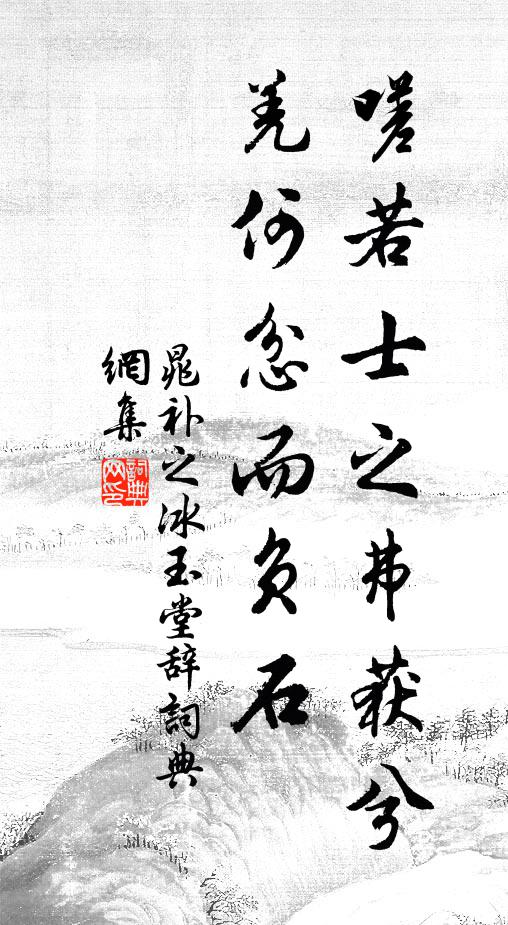 嗟若士之弗获兮
羌何忿而负石
晁补之冰玉堂辞詞典
網集
詞典
网印